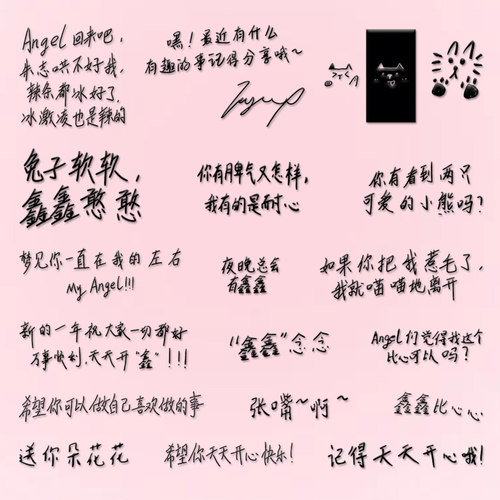 Angel回来吧,
朱志哄不好我,
辣条都冰好了,
冰激凌也是辣的
嘿!最近有什么
有趣的事记得分享哦~
兔子软软,
鑫鑫憨憨
你有脾气又怎样,
我有的是耐心
你有看到两只
可爱的小熊吗?
梦见你一直在我的左右
My Angel!!!
夜晚总会
有鑫鑫
如果你把我惹毛了,
我就喵喵地离开
新的一年祝大家一切都好
万事快利,天天开“鑫”!!!
“鑫鑫”念念
Angel们觉得我这个
比心可以吗?
希望你可以做自己喜欢做的事
张嘴~啊~
鑫鑫比心心
送你朵花花
希望你天天开心快乐!
记得天天开心哦!